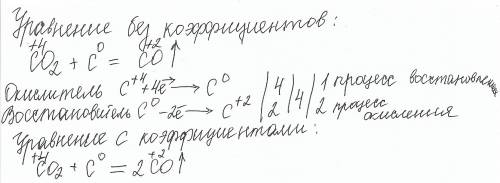 Уравнение без коэффициентов:
+4 0 +2
CO₂ + C = CO↑
Окислитель C⁺⁴+4e̅ → C⁰ | 4 | | 1 процесс восстановления
Восстановитель C⁰-2e̅ → C⁺² | 2 | 4 | 2 процесс
окисления
Уравнение с коэффициентами:
+4 0 +2
CO₂ + C = 2CO↑